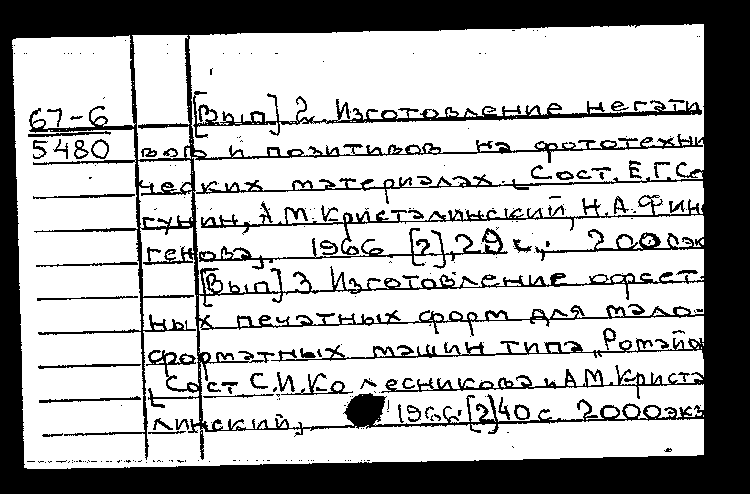 67-6
5480
[Вып] 2. Изготовление негати
вов и позитивов на фототехни
ческих материалах. Сост. Е.Г.Се
гунин, А.М.Кристалинский, Н.А.Фин
генова,. 1966. [2], 29 с,. 2000эк
[Вып] 3. Изготовление офсет-
ных печатных форм для мало-
форматных машин типа „Ромайо
[Сост С.И.Колесникова и А.М.Криста
линский, 1966. [2] 40 с. 2000экз